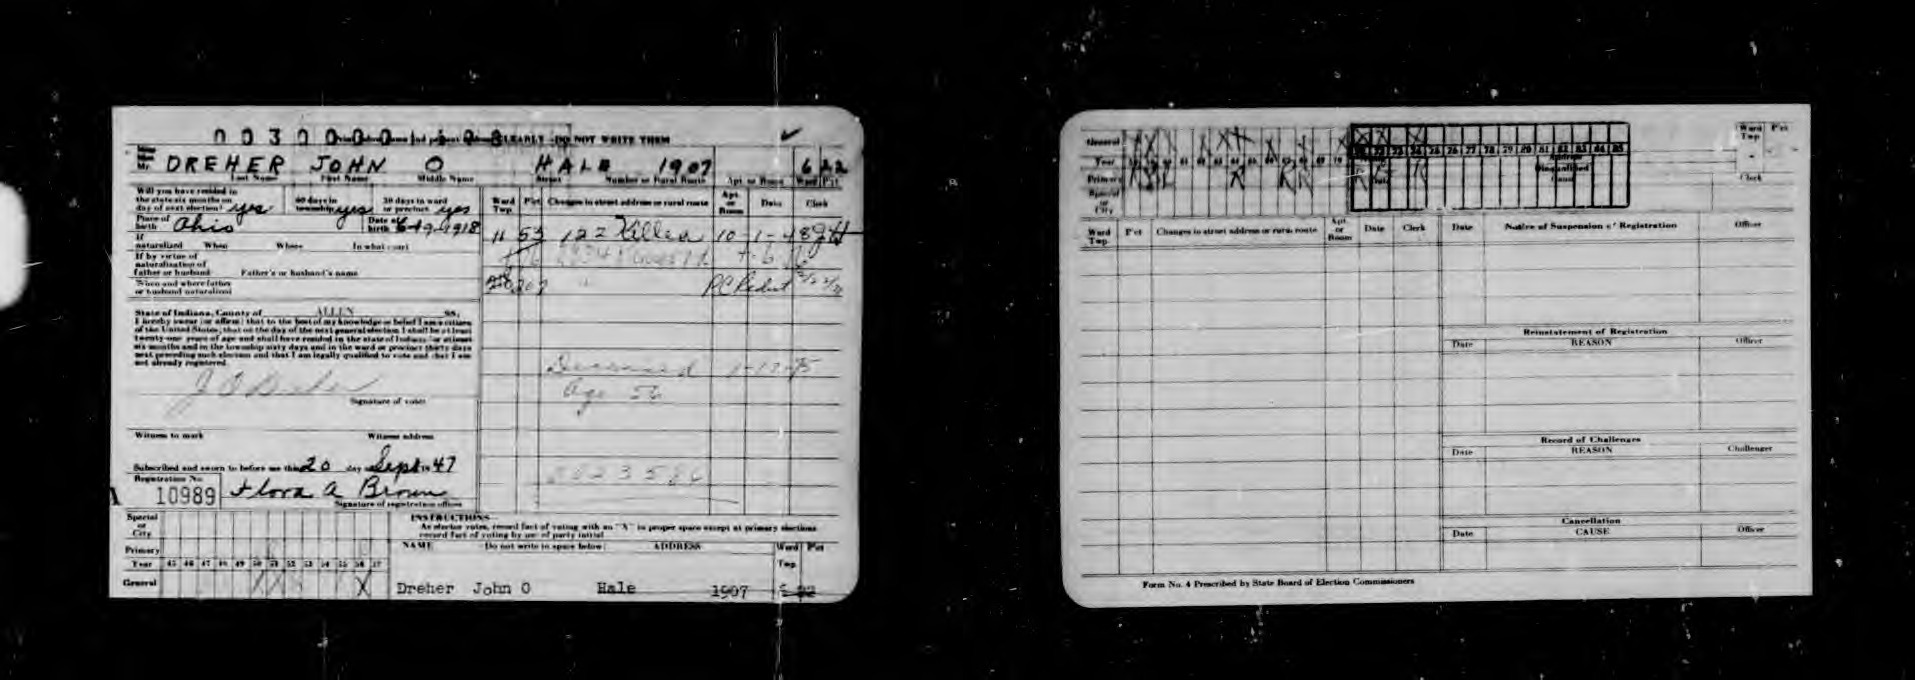 0030000108
CLEARLY - DO NOT WRITE THEM
Mr. DREHER JOHN O HALE 1907 6 22
Last Name First Name Middle Name Street Number or Rural Route Apt. or Room Ward Pct
Will you have resided in the state six months on day of next election? yes 60 days in township yes 30 days in ward or precinct yes
Place of birth Ohio Date of birth 6-19-1918
If naturalized When Where In what court
If by virtue of naturalization of father or husband Father's or husband's name
When and where father or husband naturalized
State of Indiana, County of ALLEN SS:
I hereby swear (or affirm) that to the best of my knowledge or belief I am a citizen
of the United States; that on the day of the next general election I shall be at least
twenty-one years of age and shall have resided in the state of Indiana for at least
six months and in the township sixty days and in the ward or precinct thirty days
next preceding such election and that I am legally qualified to vote and that I am
not already registered.
J O Dreher
Signature of voter
Witness to mark Witness address
Subscribed and sworn to before me this 20 day of Sept 19 47
Registration No.
10989 Flora A Brown
Signature of registration officer
Ward Twp. Pct Changes in street address or rural route Apt. or Room Date Clerk
11 53 122 Killea 10-1-48
Deceased 1-17-75
Age 56
2023586
Special or City
Primary
Year 45 46 47 48 49 50 51 52 53 54 55 56 57
General X X X
INSTRUCTIONS
As elector votes, record fact of voting with an "X" in proper space except at primary elections
record fact of voting by use of party initial
NAME Do not write in space below ADDRESS Ward Twp. Pct
Dreher John O Hale 1907
General
Year
Primary
Special or City
70 72 73 74 75 76 77 78 79 80 81 82 83 84 85
Ward Twp. Pct
Clerk
Ward Twp. Pct Changes in street address or rural route Apt. or Room Date Clerk
Date Notice of Suspension of Registration Officer
Reinstatement of Registration
Date REASON Officer
Record of Challenges
Date REASON Challenger
Cancellation
Date CAUSE Officer
Form No. 4 Prescribed by State Board of Election Commissioners